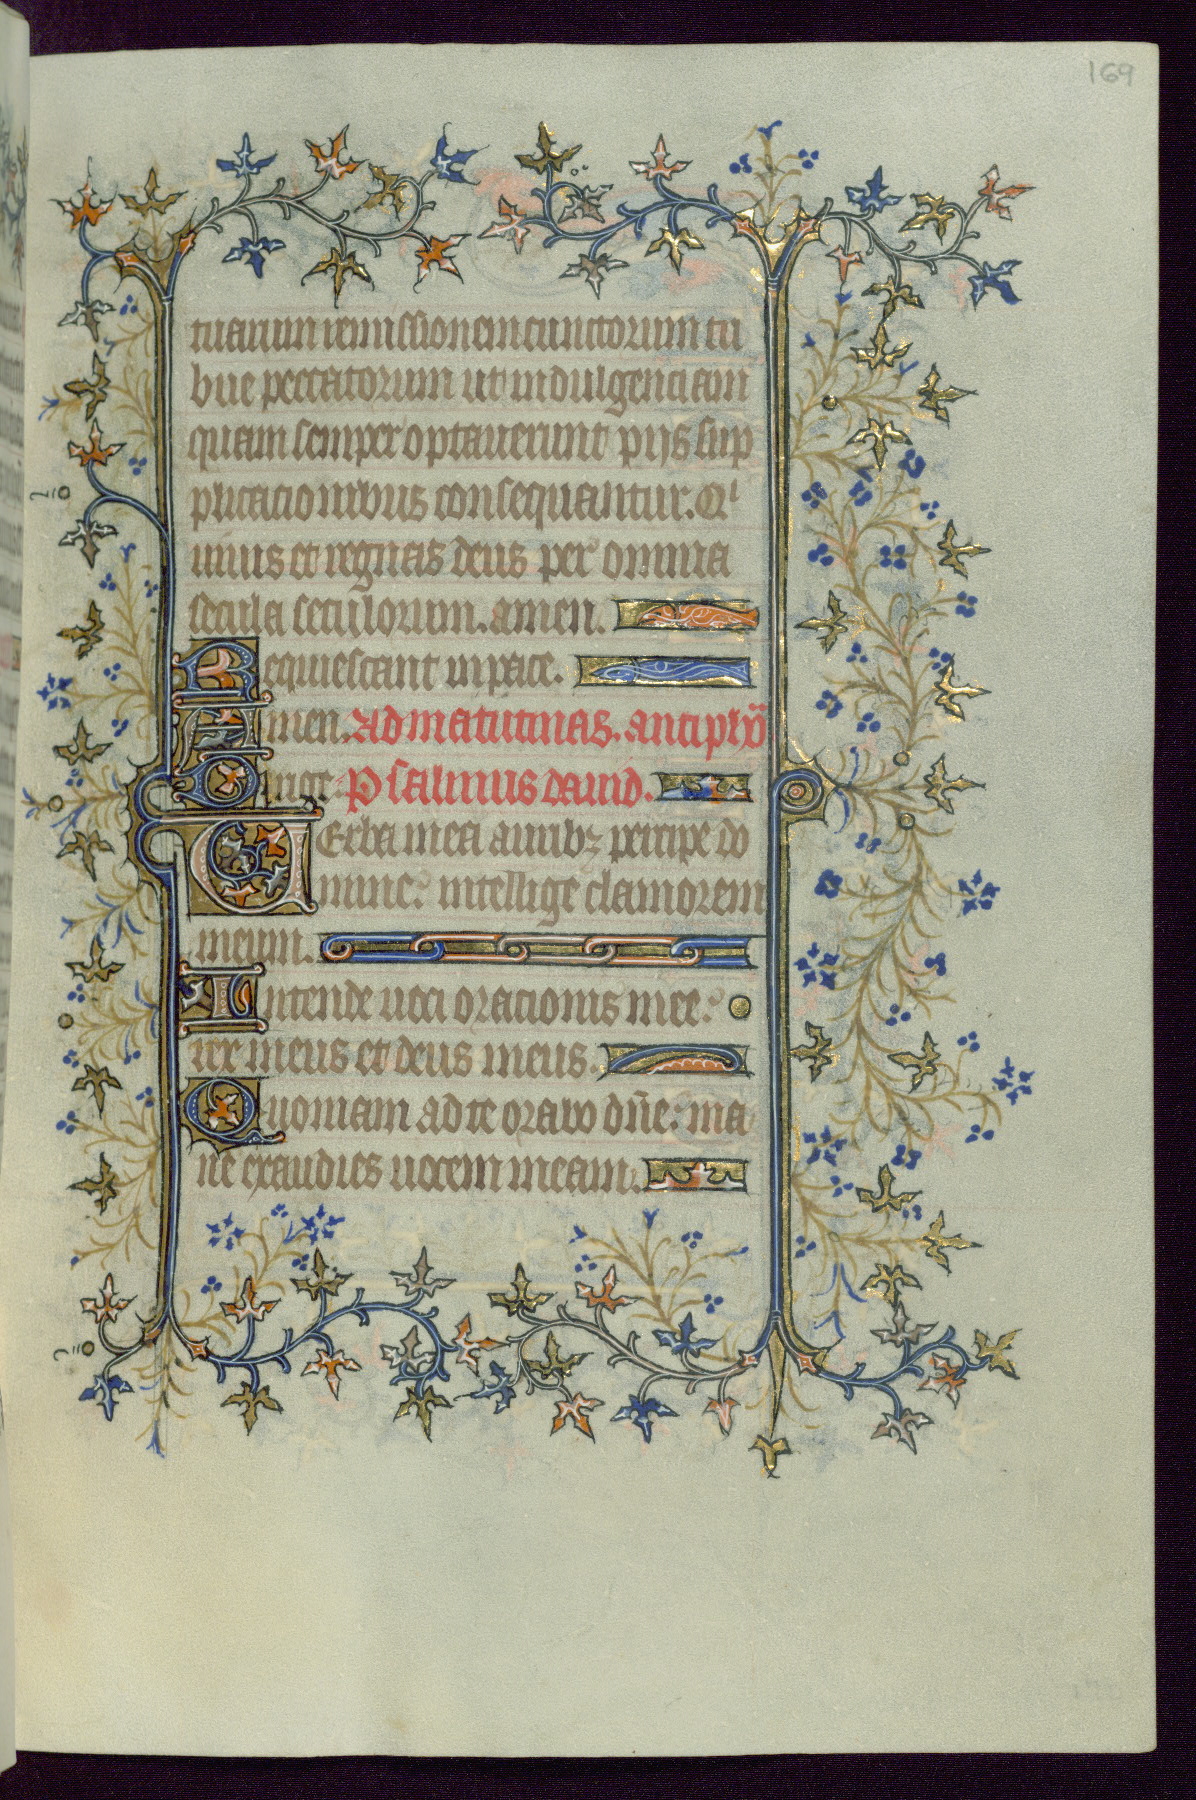 169
tuarum remissionem cunctorum tri
bue peccatorum ut indulgenciam
quam semper optauerunt pijs sup
plicationibus consequantur. Qi
uiuis et regnas deus per omnia
secula seculorum. amen.
Requiescant in pace.
Amen. Ad matutinas. antiphõ
Dirige. Psalmus dauid.
Verba mea auribz percipe do
mine: intellige clamorem
meum.
Intende uoci orationis mee:
rex meus et deus meus.
Quoniam ad te orabo dñe: ma
ne exaudies uocem meam.